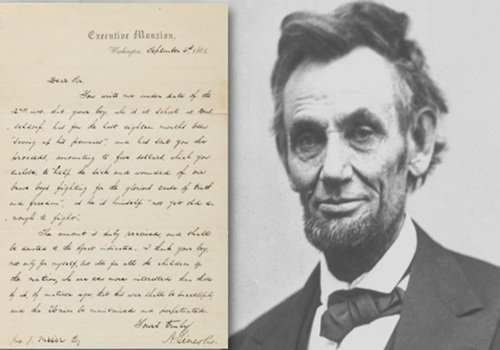 Executive Mansion,
Washington, September 6th
Dear Sir
You write me under date of the
2nd inst. that your boy, who is at school at
has for the last eighteen months been
"saving up his pennies", and has sent you the
proceeds, amounting to five dollars, which you
enclose to "help the sick and wounded of our
brave boys fighting for the glorious cause of truth
and freedom", as he is himself "not yet old e-
nough to fight".
The amount is duly received, and shall
be devoted to the object indicated. I thank your boy
not only for myself, but also for all the children of
the nation, who are even more interested than those
of us of mature age, that this war shall be successful,
and the Union be maintained and perpetuated.
Yours truly
A. Lincoln.
Jno. J. Meier Esq